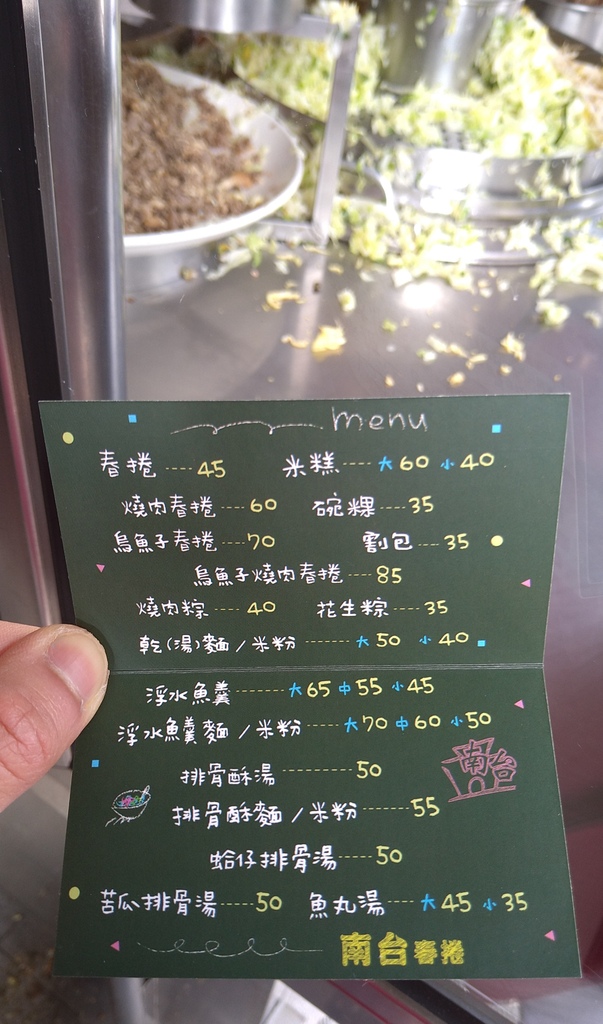 menu
春捲 ---- 45 米糕 ---- 大 60 小 40
燒肉春捲 --- 60 碗粿 ---- 35
烏魚子春捲 --- 70 割包 --- 35
烏魚子燒肉春捲 ---- 85
燒肉粽 ---- 40 花生粽 ---- 35
乾(湯)麵/米粉 ------- 大 50 小 40
浮水魚羹 ------- 大 65 中 55 小 45
浮水魚羹麵/米粉 ------ 大 70 中 60 小 50
排骨酥湯 --------- 50
南台
排骨酥麵/米粉 ------ 55
蛤仔排骨湯 ----- 50
苦瓜排骨湯 ----- 50 魚丸湯 ----- 大 45 小 35
南台春捲